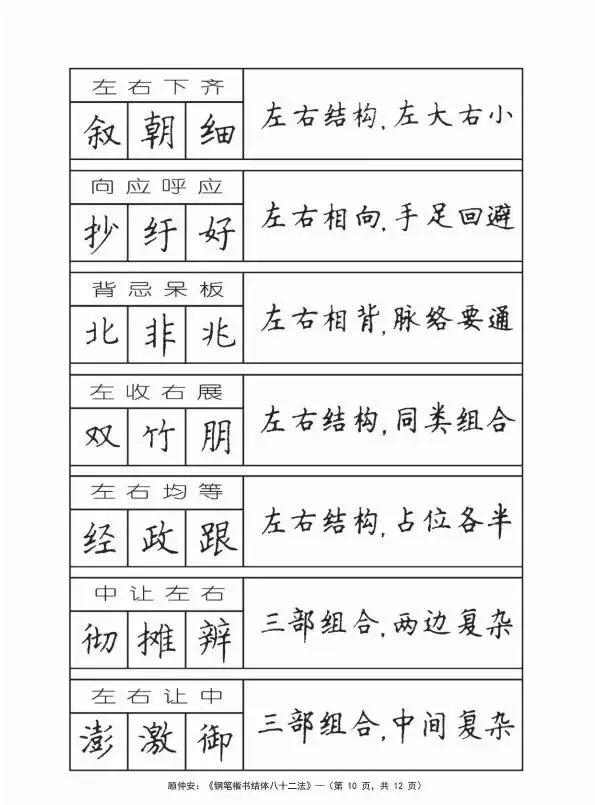 左右下齐
叙 朝 细
左右结构,左大右小
向应呼应
抄 纡 好
左右相向,手足回避
背忌呆板
北 非 兆
左右相背,脉络要通
左收右展
双 竹 朋
左右结构,同类组合
左右均等
经 政 跟
左右结构,占位各半
中让左右
彻 摊 辨
三部组合,两边复杂
左右让中
澎 激 御
三部组合,中间复杂
顾仲安:《钢笔楷书结体八十二法》—(第 10 页,共 12 页)